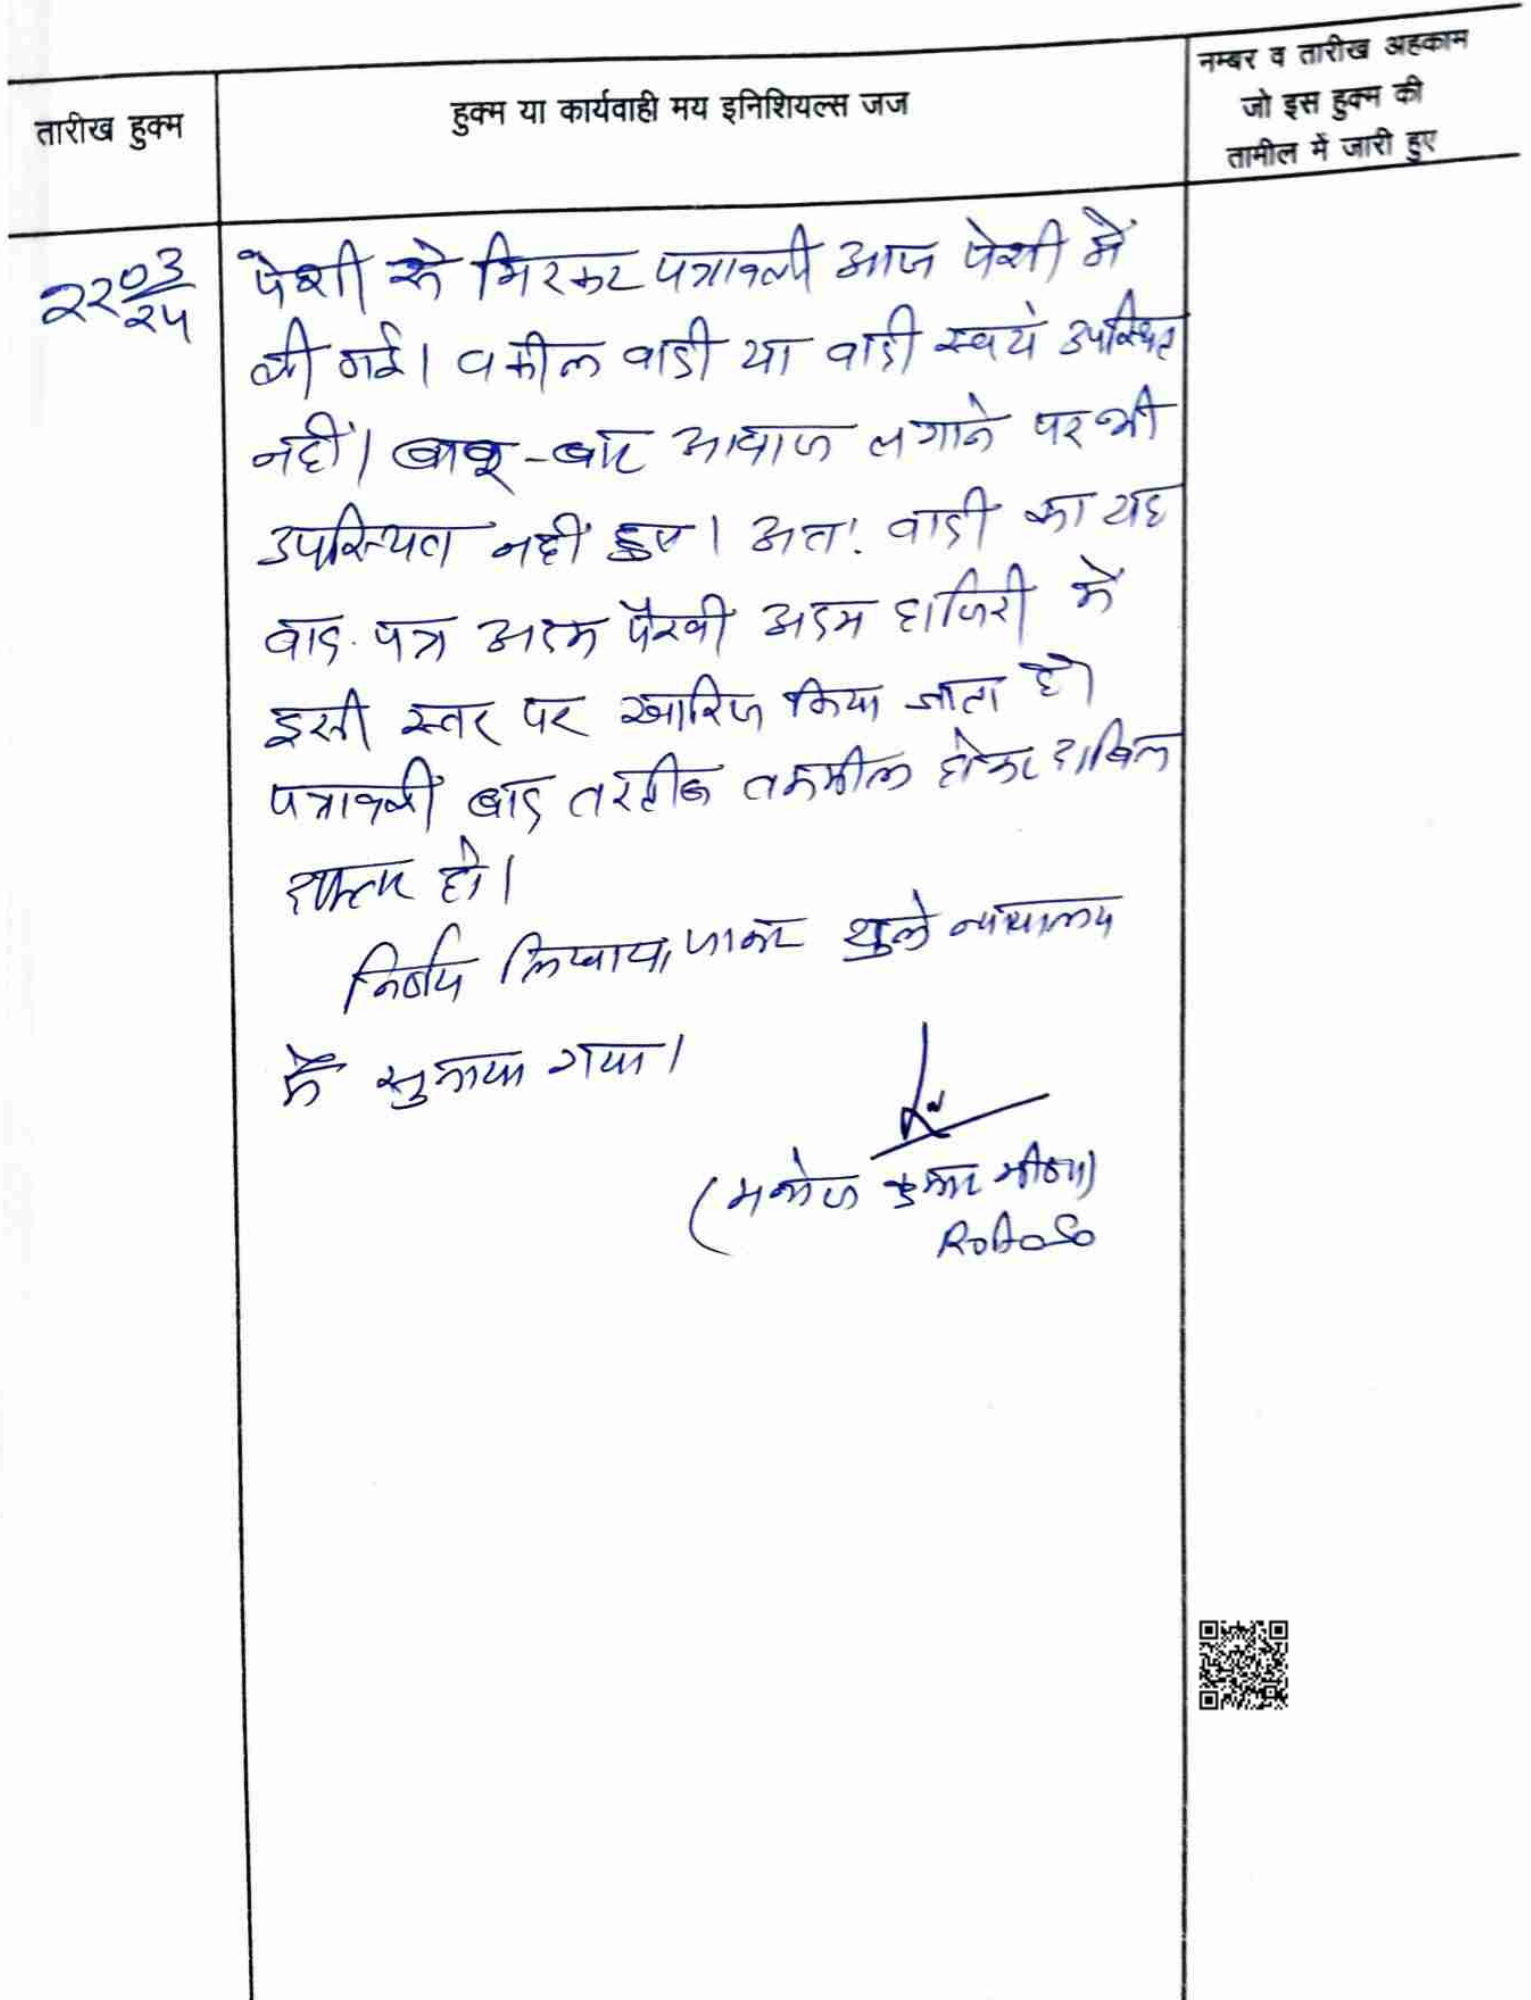 तारीख हुक्म
हुक्म या कार्यवाही मय इनिशियल्स जज
नम्बर व तारीख अहकाम
जो इस हुक्म की
तामील में जारी हुए
२२०३/२५
पेशी से गिरकर पत्रावली आज पेशी में
ली गई। वकील वादी या वादी स्वयं उपस्थित
नहीं। बार-बार आवाज लगाने पर भी
उपस्थित नहीं हुए। अतः वादी का यह
वाद-पत्र अदम पैरवी अदम हाजिरी में
इसी स्तर पर खारिज किया जाता है।
पत्रावली बाद तरतीब तकमील होकर दाखिल
दफ्तर हो।
निर्णय लिखाया जाकर खुले न्यायालय
में सुनाया गया।
(मनोज कुमार मीणा)
R.A.S.